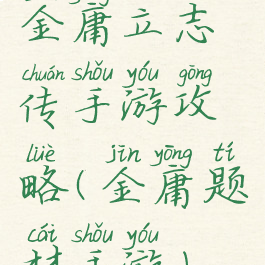 金庸立志
chuán shǒu yóu gōng
传手游攻
lüè jīn yōng tí
略(金庸题
cái shǒu yóu
材手游)